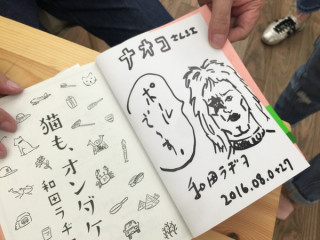 猫も、オンダケ
和田ラヂヲ
ナオコさん江
ポールです。
和田ラヂヲ
2016.08.0+27